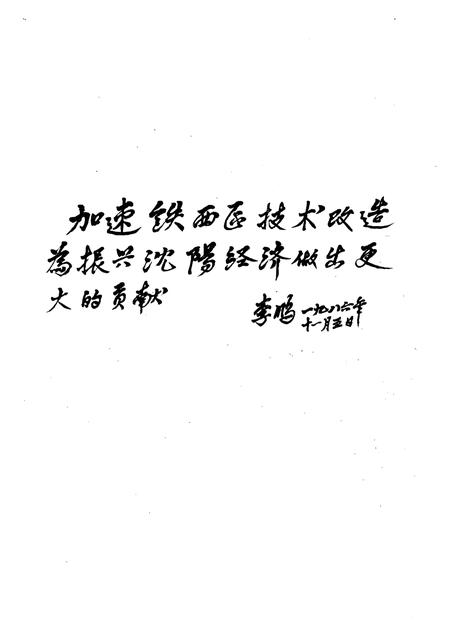 加速铁西区技术改造
為振兴沈陽经济做出更
大的贡献
李鹏 一九八六年
十一月五日